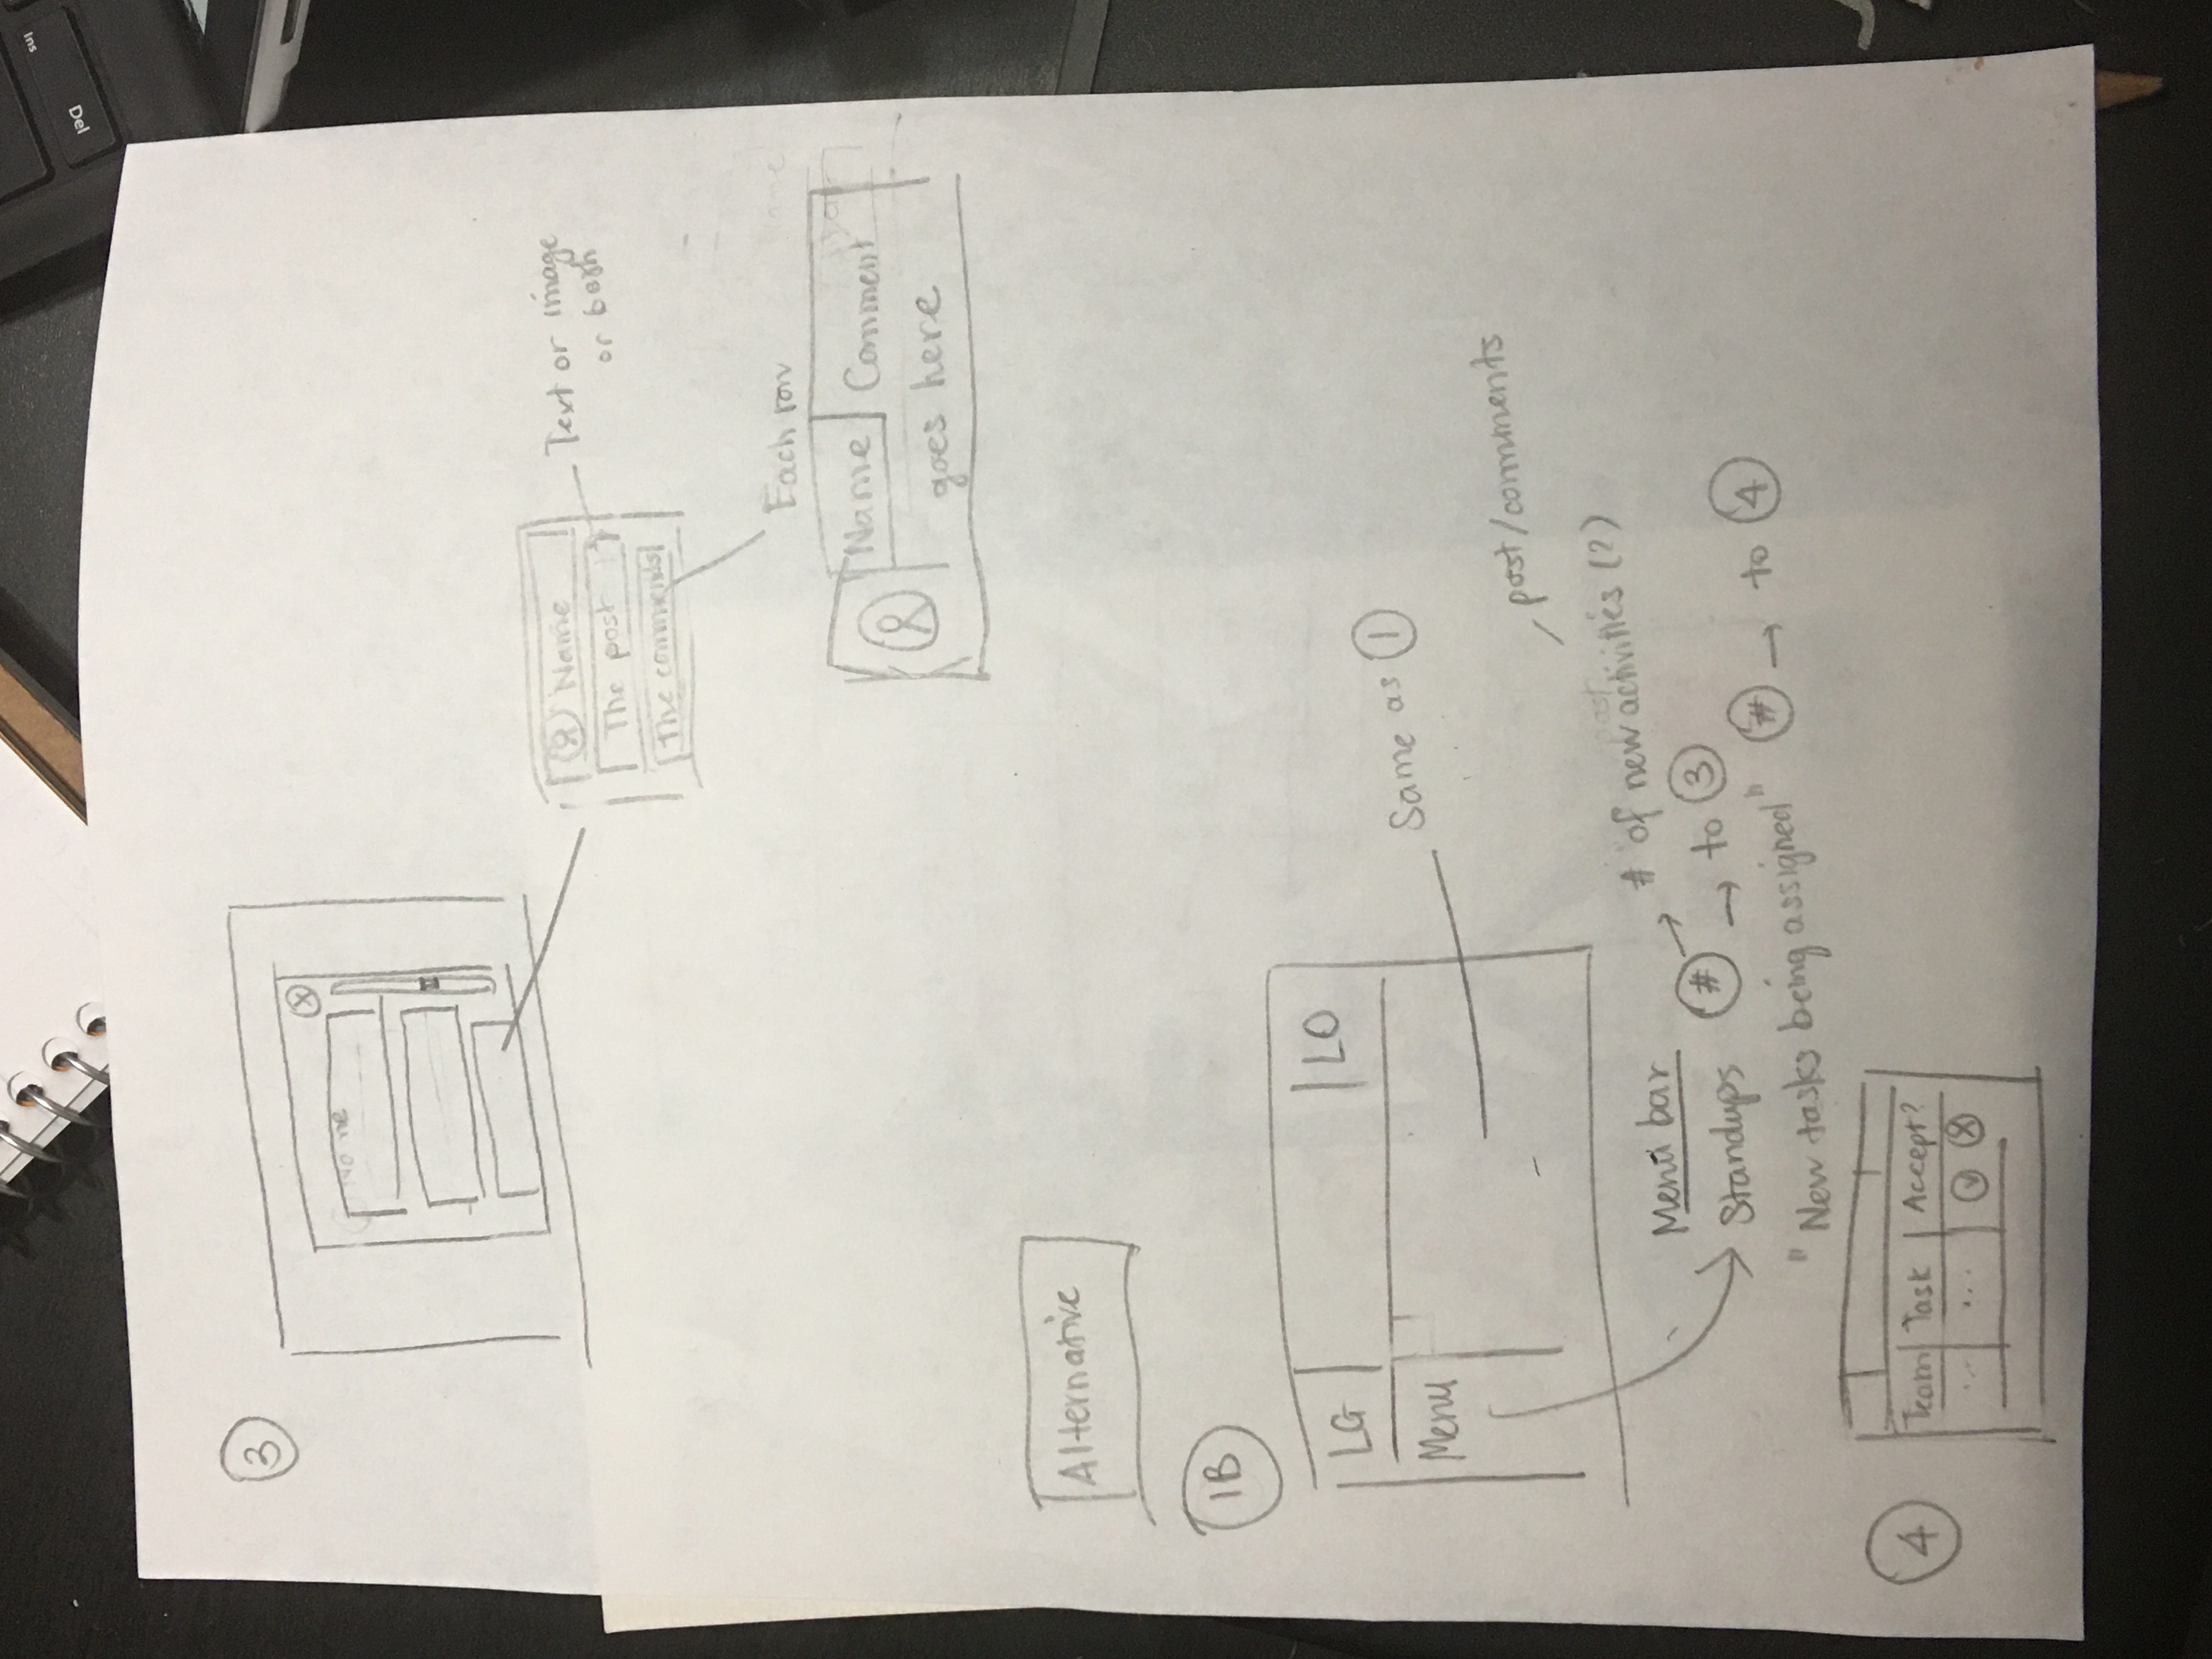 Ins
Del
3
X
Name
Name
The post
The comments
Text or image
or both
Each row
Name
Comment
goes here
Alternative
1B
LG
LO
Menu
Same as 1
post/comments
# of new activities (?)
Menu bar
Standups # → to 3
"New tasks being assigned" # → to 4
4
Team Task Accept?
... ...